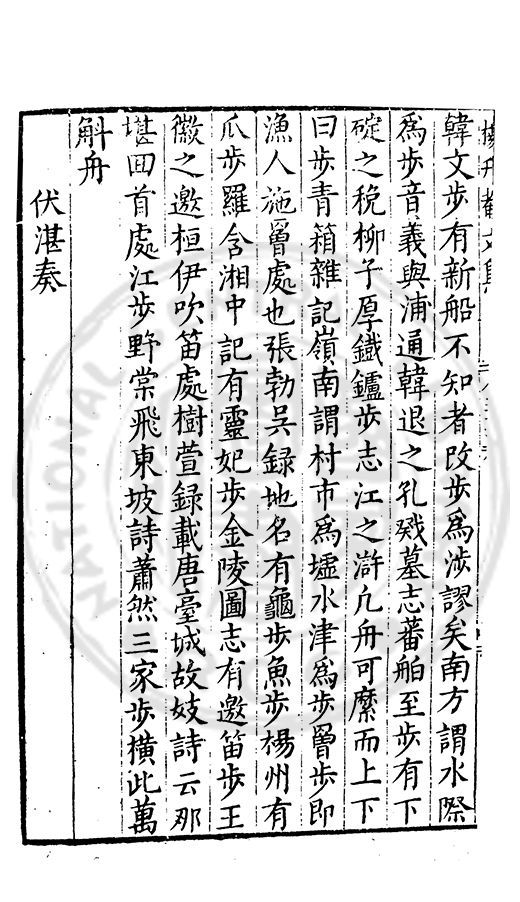 韓文步有新船不知者改步爲涉謬矣南方謂水際
爲步音義與浦通韓退之孔戣墓志蕃舶至步有下
碇之稅柳子厚鐵鑪步志江之滸凢舟可縻而上下
曰步青箱雜記嶺南謂村市爲墟水津爲步罾步即
漁人施罾處也張勃吳録地名有龜步魚步楊州有
瓜步羅含湘中記有靈妃步金陵圖志有邀笛步王
徽之邀桓伊吹笛處樹萱録載唐臺城故妓詩云那
堪囬首處江步野棠飛東坡詩蕭然三家步橫此萬
斛舟
伏湛奏
NATIONAL